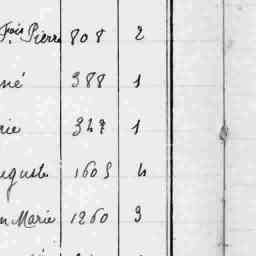 Fois Pierre 808 2
né 388 1
rie 347 1
uguste 1605 4
n Marie 1260 3